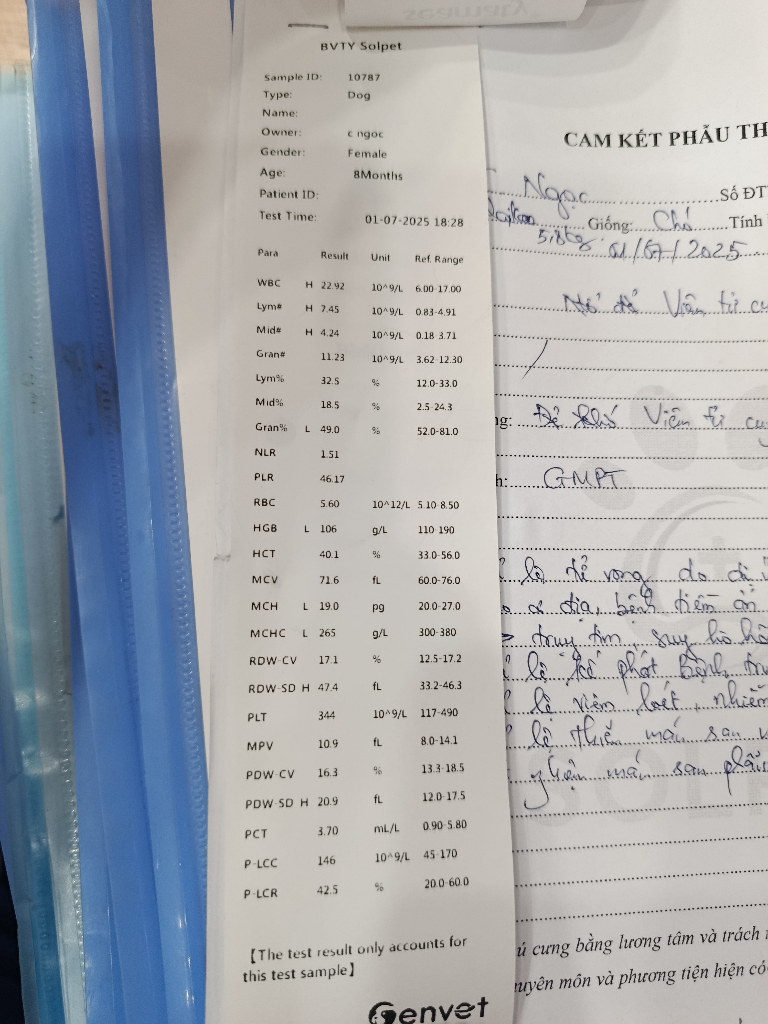 BVTY Solpet
Sample ID: 10787
Type: Dog
Name:
Owner: c ngoc
Gender: Female
Age: 8Months
Patient ID:
Test Time: 01-07-2025 18:28
Para Result Unit Ref. Range
WBC H 22.92 10^9/L 6.00-17.00
Lym# H 7.45 10^9/L 0.83-4.91
Mid# H 4.24 10^9/L 0.18-3.71
Gran# 11.23 10^9/L 3.62-12.30
Lym% 32.5 % 12.0-33.0
Mid% 18.5 % 2.5-24.3
Gran% L 49.0 % 52.0-81.0
NLR 1.51
PLR 46.17
RBC 5.60 10^12/L 5.10-8.50
HGB L 106 g/L 110-190
HCT 40.1 % 33.0-56.0
MCV 71.6 fL 60.0-76.0
MCH L 19.0 pg 20.0-27.0
MCHC L 265 g/L 300-380
RDW-CV 17.1 % 12.5-17.2
RDW-SD H 47.4 fL 33.2-46.3
PLT 344 10^9/L 117-490
MPV 10.9 fL 8.0-14.1
PDW-CV 16.3 % 13.3-18.5
PDW-SD H 20.9 fL 12.0-17.5
PCT 3.70 mL/L 0.90-5.80
P-LCC 146 10^9/L 45-170
P-LCR 42.5 % 20.0-60.0
【The test result only accounts for
this test sample】
Genvet
CAM KẾT PHẪU TH
Ngọc Số ĐT
Giống: Chó Tính
5,8kg 01/07/2025
đẻ Viêm tử cu
Đẻ khó Viêm tử cu
GMPT
lệ tử vong do dị
cơ địa, bệnh tiềm ẩn
trụy tim, suy hô hấ
lệ kế phát bệnh tru
lệ viêm loét, nhiễm
lệ thiếu máu sau
máu sau phẫu
ú cưng bằng lương tâm và trách
uyên môn và phương tiện hiện có